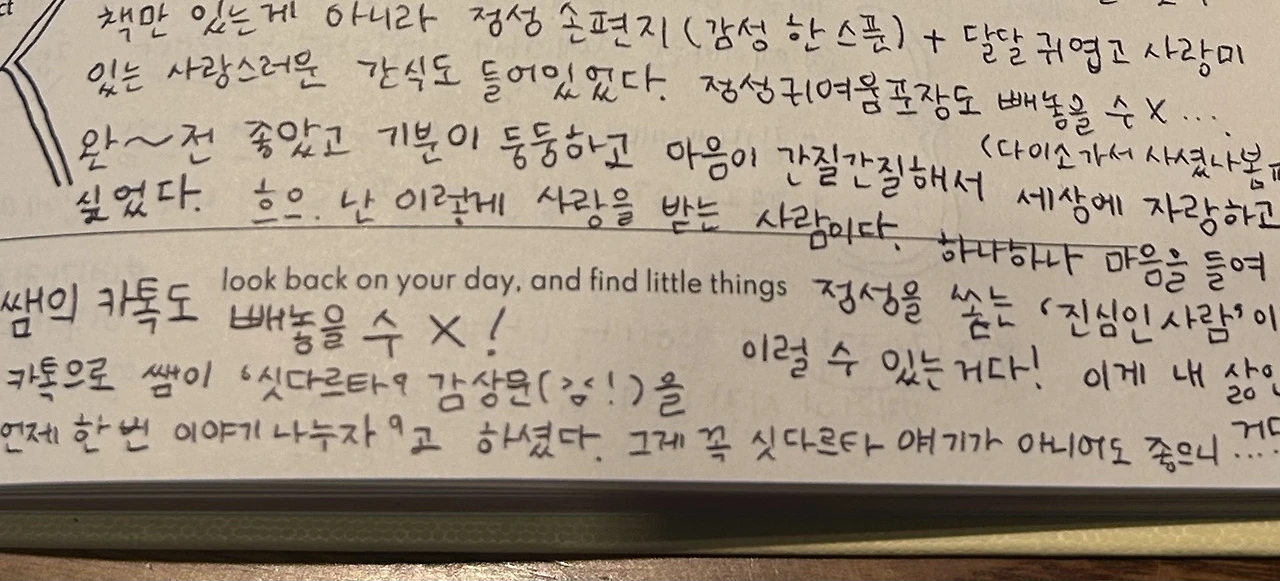 ct
책만 있는게 아니라 정성 손편지 (감성 한 스푼) + 달달 귀엽고 사랑미
있는 사랑스러운 간식도 들어있었다. 정성귀여움포장도 빼놓을 수 X ....
(다이소가서 사셨나봄
완~전 좋았고 기분이 둥둥하고 마음이 간질간질해서 세상에 자랑하고
싶었다. 흐으. 난 이렇게 사랑을 받는 사람이다.
하나하나 마음을 들여
정성을 쏟는 '진심인 사람'이
이럴 수 있는거다! 이게 내 삶인
거다
....
look back on your day, and find little things
쌤의 카톡도 빼놓을 수 X!
카톡으로 쌤이 '싯다르타' 감상문(ㄷㄷ!)을
언제 한 번 이야기나누자'고 하셨다. 그게 꼭 싯다르타 얘기가 아니어도 좋으니